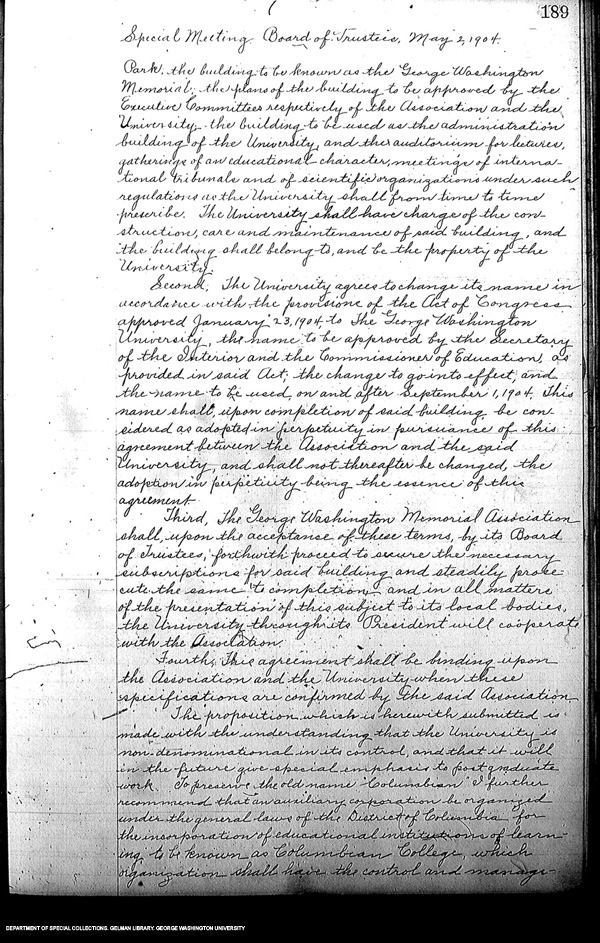 189
Special Meeting Board of Trustees, May 2, 1904.
Park, the building to be known as the George Washington
Memorial; the plans of the building to be approved by the
Executive Committees respectively of the Association and the
University, the building to be used as the administration
building of the University, and the auditorium for lectures,
gatherings of an educational character, meetings of interna-
tional tribunals and of scientific organizations under such
regulations as the University shall from time to time
prescribe. The University shall have charge of the con-
struction, care and maintenance of said building, and
the building shall belong to, and be the property of the
University.
Second, The University agrees to change its name in
accordance with the provisions of the Act of Congress
approved January 23, 1904, to The George Washington
University, the name to be approved by the Secretary
of the Interior and the Commissioner of Education, as
provided in said Act; the change to go into effect, and
the name to be used, on and after September 1, 1904. This
name shall, upon completion of said building be con-
sidered as adopted in perpetuity in pursuance of this
agreement between the Association and the said
University, and shall not thereafter be changed, the
adoption in perpetuity being the essence of this
agreement
Third, The George Washington Memorial Association
shall, upon the acceptance of these terms, by its Board
of Trustees, forthwith proceed to secure the necessary
subscriptions for said building and steadily prose-
cute the same to completion, and in all matters
of the presentation of this subject to its local bodies,
the University through its President will coöperate
with the Association.
Fourth, This agreement shall be binding upon
the Association and the University when these
specifications are confirmed by the said Association
The proposition which is herewith submitted is
made with the understanding that the University is
non-denominational in its control, and that it will
in the future give special emphasis to post graduate
work. To preserve the old name "Columbian" I further
recommend that an auxiliary corporation be organized
under the general laws of the District of Columbia for
the incorporation of educational institutions of learn-
ing, to be known as Columbian College, which
organization shall have the control and manage-
DEPARTMENT OF SPECIAL COLLECTIONS. GELMAN LIBRARY. GEORGE WASHINGTON UNIVERSITY